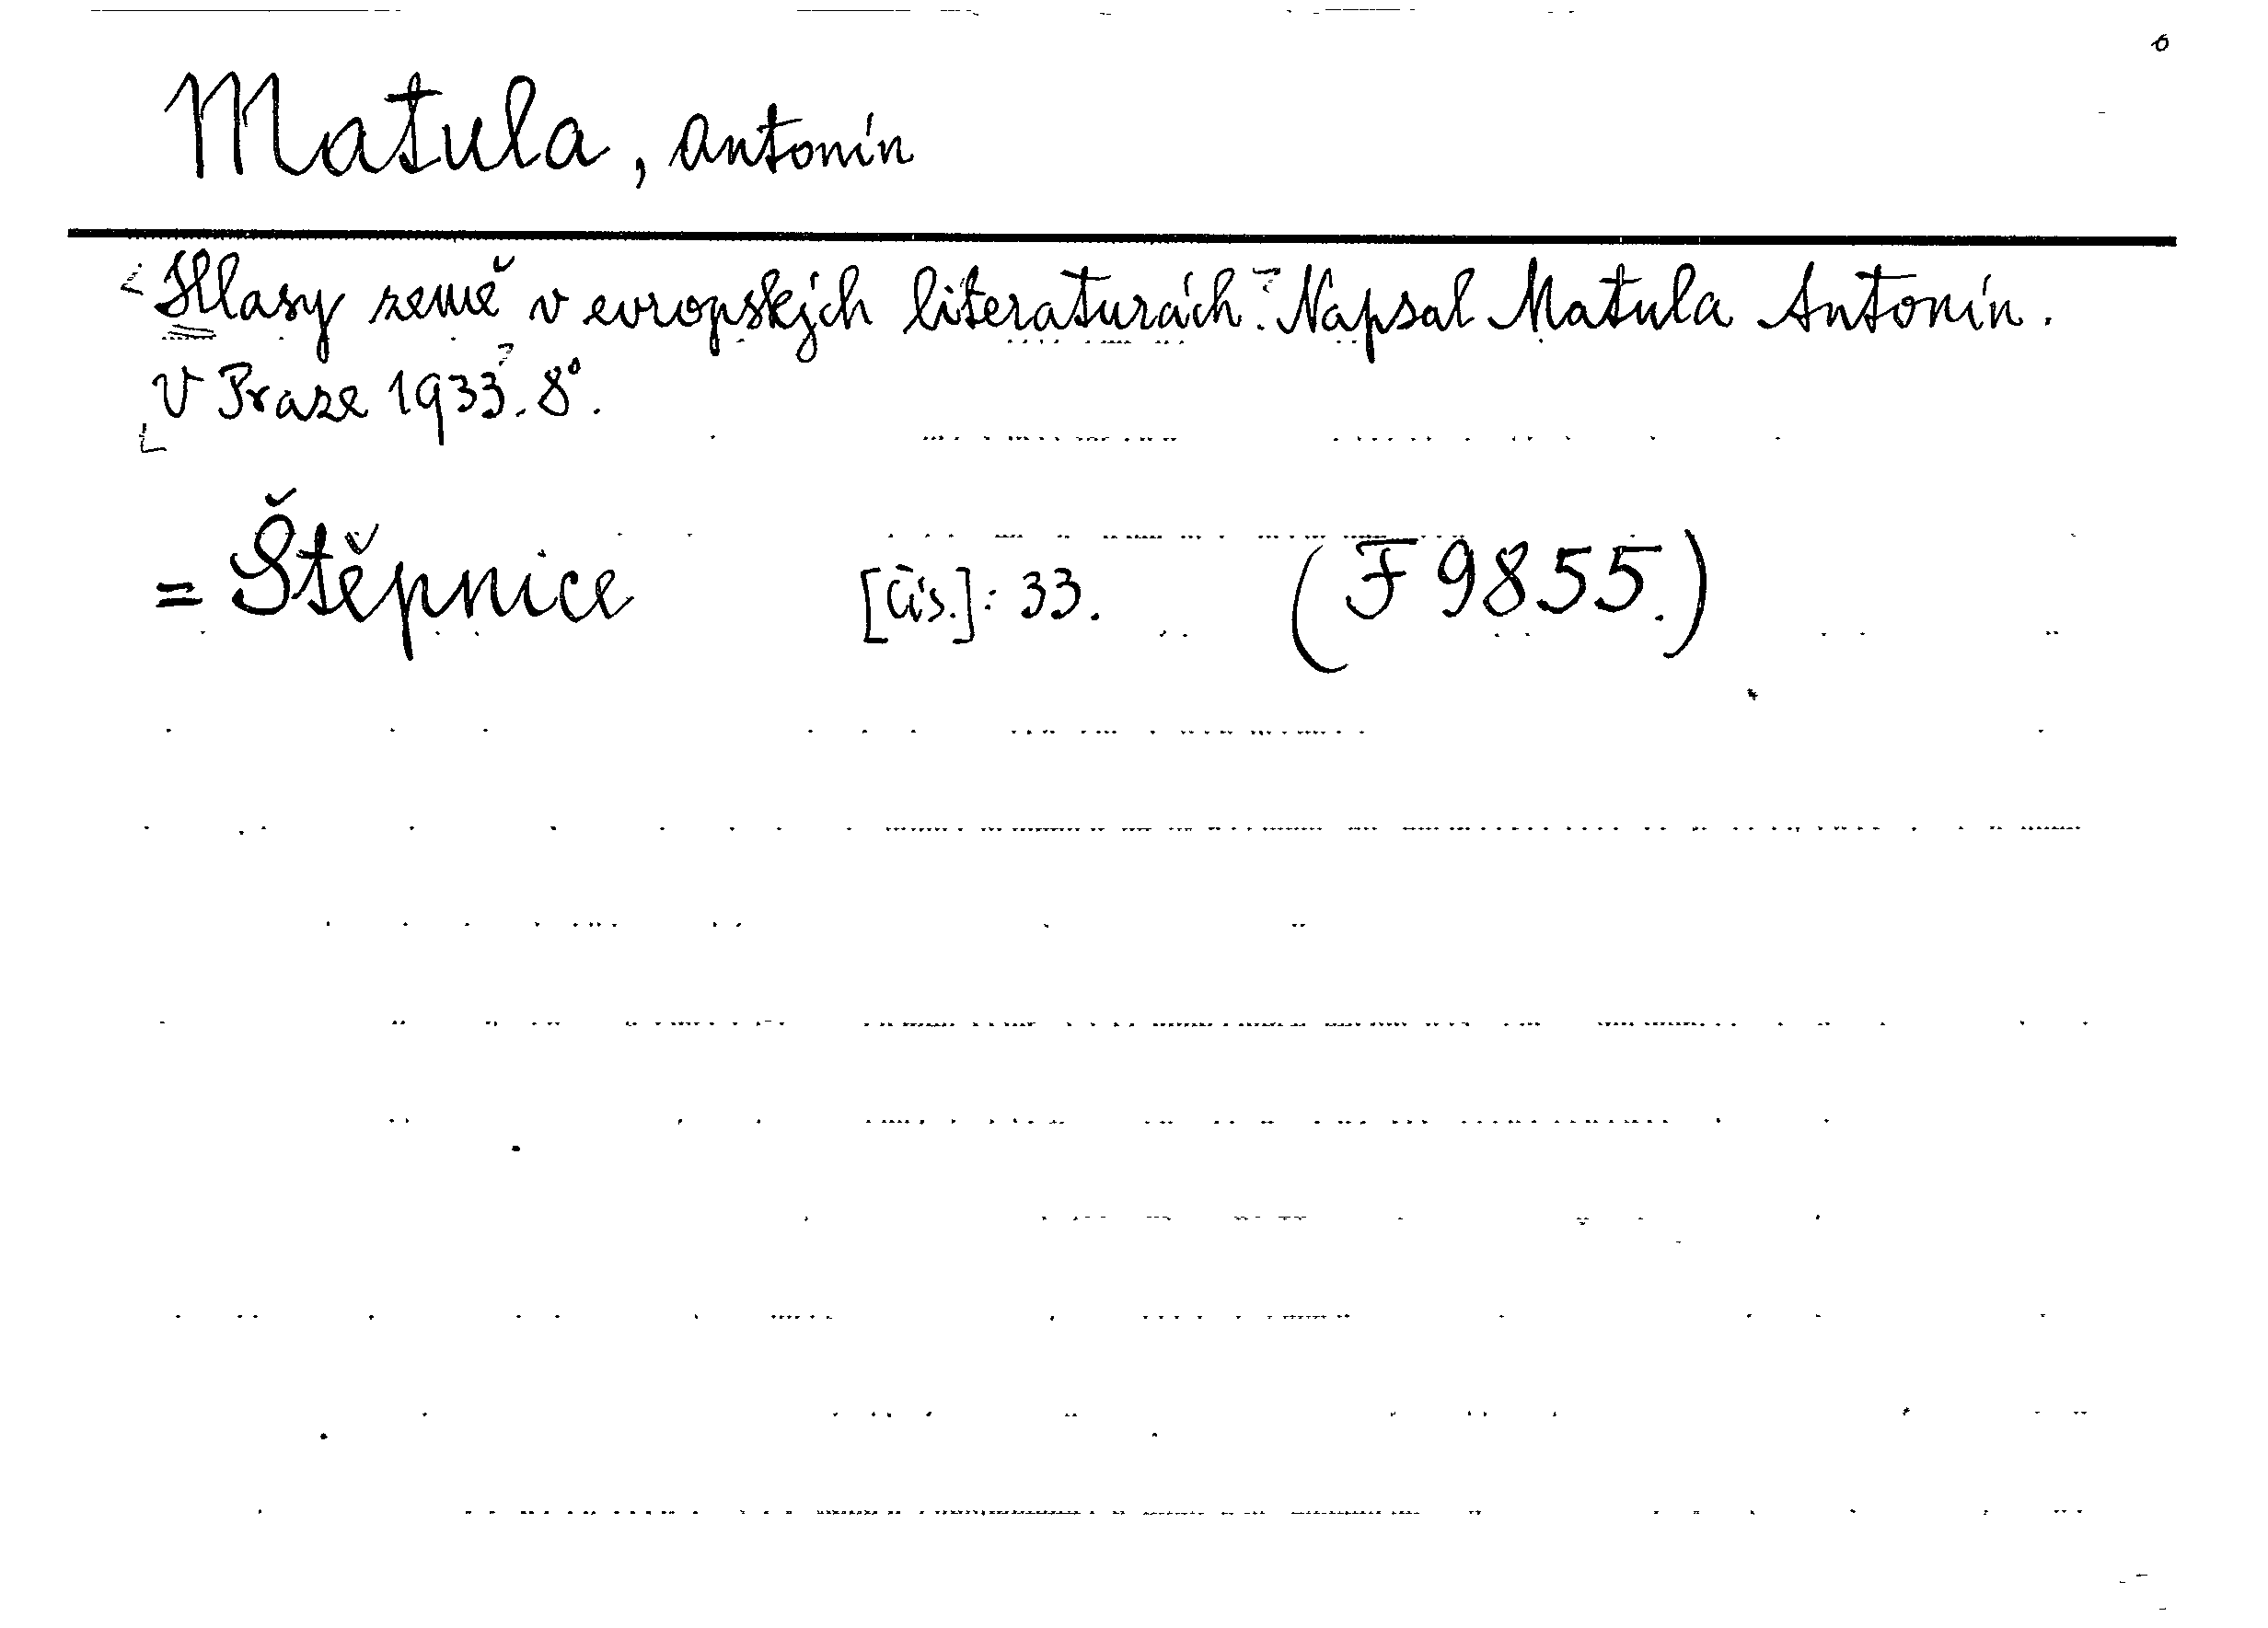 Matula, Antonín
Hlasy země v evropských literaturách. Napsal Matula Antonín.
V Praze 1933. 8°.
= Štěpnice [čís.]: 33. (F 9855.)